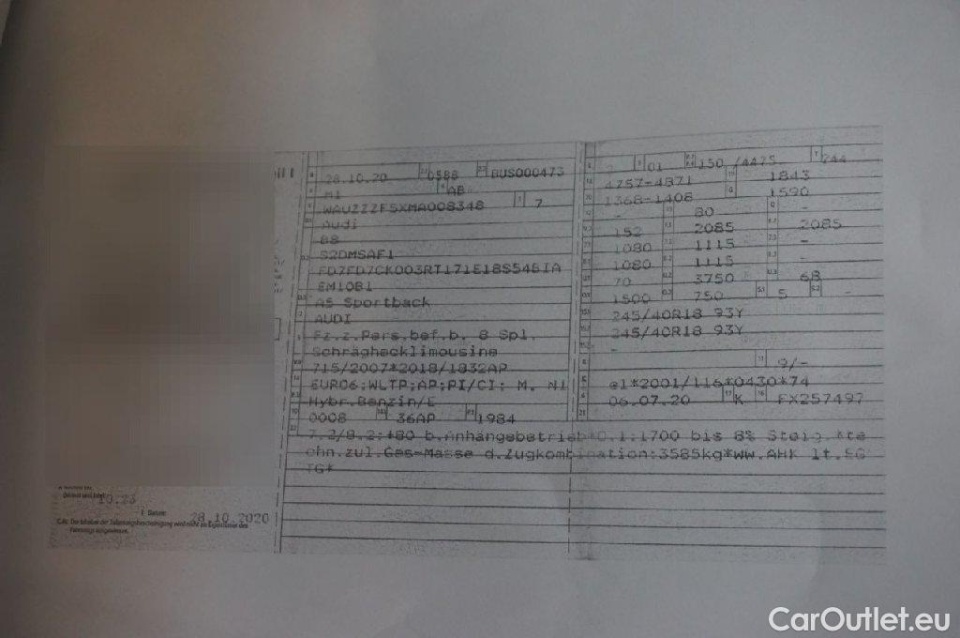 28.10.20 0588 BUS000473
M1 AB
WAUZZZF5XMA008348 7
Audi
B8
S2DMSAF1
FD7FD7CK003RT171E18S54BIA
EM10B1
A5 Sportback
AUDI
Fz.z.Pers.bef.b. 8 Spl.
Schräghecklimousine
715/2007*2018/1832AP
EURO6;WLTP;AP;PI/CI; M, N1
Hybr.Benzin/E
0008 36AP 1984
7.2/8.2:+80 b.Anhängebetrieb*O.1:1700 bis 8% Steig.*te
ohn.zul.Ges-Masse d.Zugkombination:3585kg*WW.AHK lt.EG
TG*
- 01 150 /4475- 244
4757-4871 1843
1368-1408 1590
- 80 -
152 2085 2085
1080 1115 -
1080 1115 -
70 3750 68
1500 750 5 -
245/40R18 93Y
245/40R18 93Y
-
9/-
e1*2001/116*0430*74
06.07.20 K FX257497
10.23
28.10.2020
CarOutlet.eu